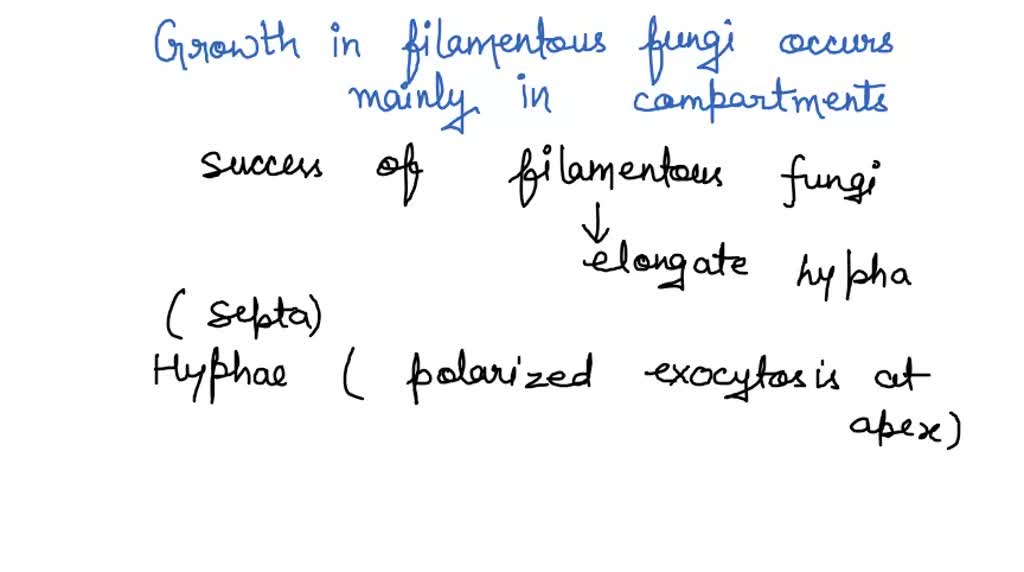 Growth in filamentous fungi occurs
mainly in compartments
success of filamentous fungi
↓
elongate hypha
(septa)
Hyphae (polarized exocytosis at
apex)